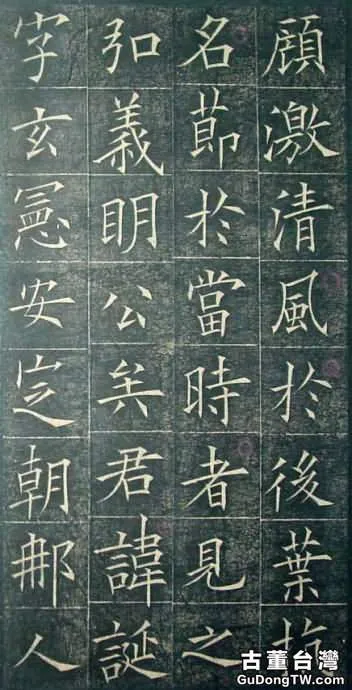 顧激清風於後葉抗
名節於當時者見之
弘義明公矣君諱誕
字玄憲安定朝那人
古董台灣
GuDongTW.com